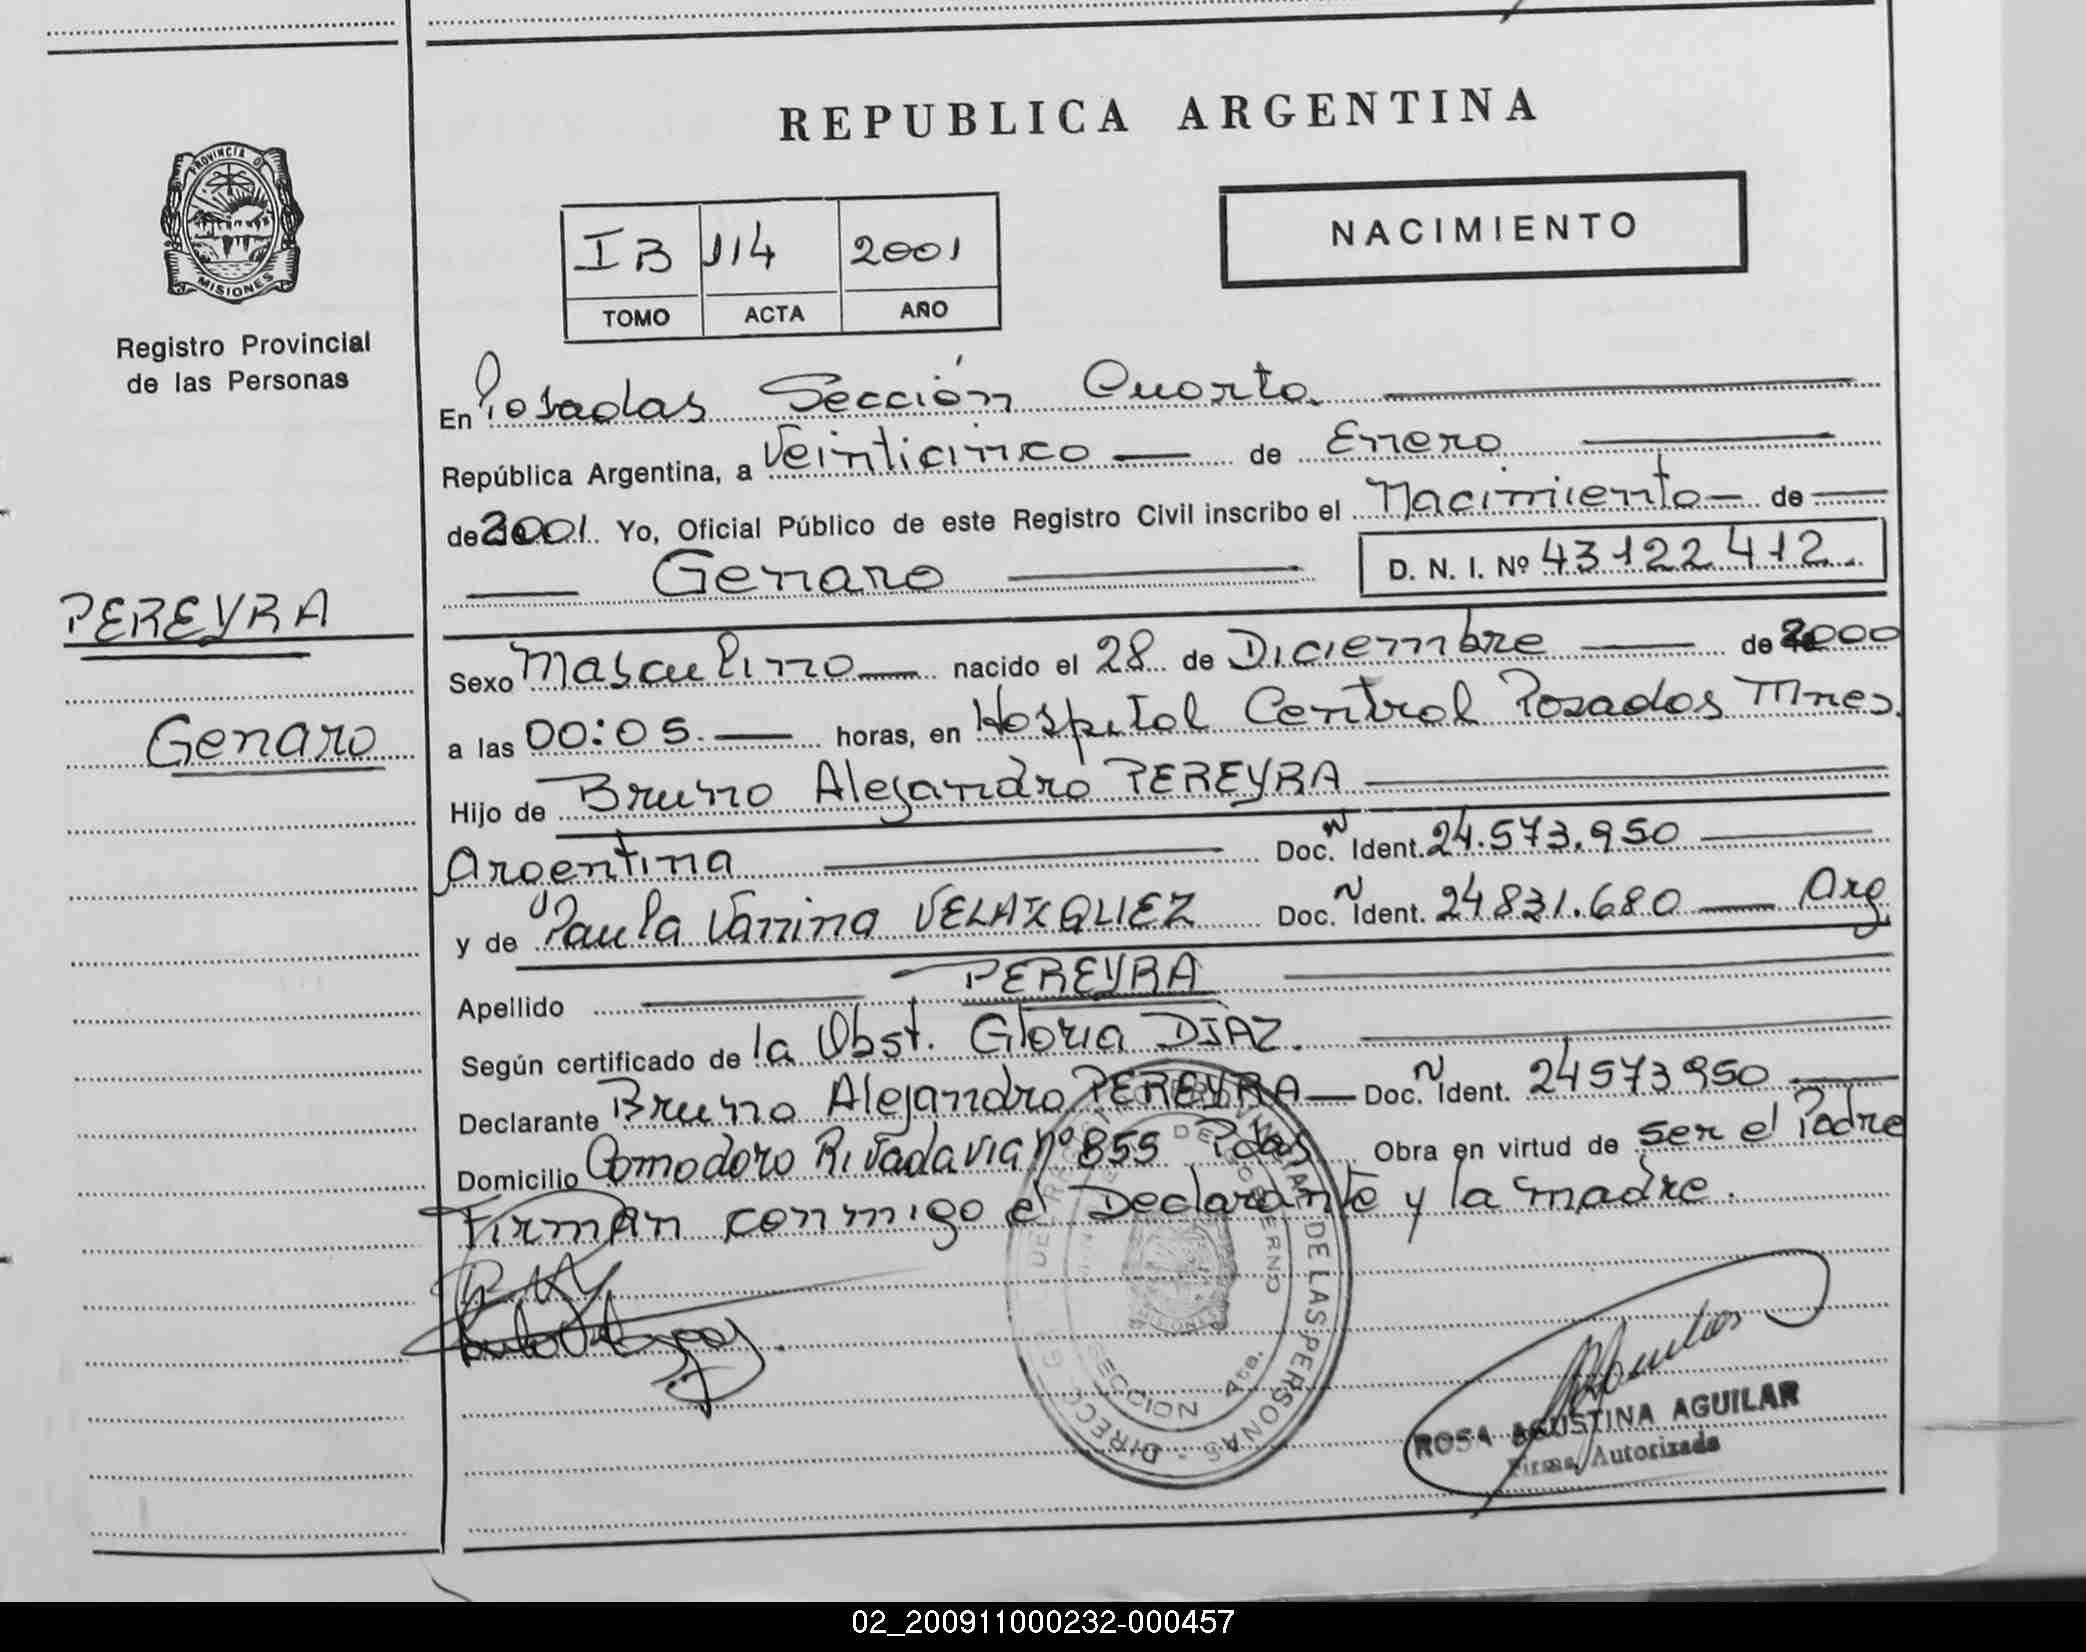 REPUBLICA ARGENTINA
NACIMIENTO
IB 114 2001
TOMO ACTA AÑO
PROVINCIA DE MISIONES
Registro Provincial
de las Personas
En Posadas Sección Cuarta
República Argentina, a Veinticinco de Enero
de 2001. Yo, Oficial Público de este Registro Civil inscribo el Nacimiento de
Genaro D. N. I. Nº 43122412.
PEREYRA
Genaro
Sexo Masculino nacido el 28 de Diciembre de 2000
a las 00:05. horas, en Hospital Central Posadas Mnes.
Hijo de Bruno Alejandro PEREYRA
Argentina Doc. Ident. 24.573.950
y de Paula Vanina VELAZQUEZ Doc. Ident. 24831.680 Arg
Apellido PEREYRA
Según certificado de la Obst. Gloria DIAZ.
Declarante Bruno Alejandro PEREYRA Doc. Ident. 24573950
Domicilio Comodoro Rivadavia nº 855 Pdas Obra en virtud de ser el Padre
Firman conmigo el Declarante y la madre.
DE LAS PERSONAS
SECCION 4ta.
ROSA AGUSTINA AGUILAR
Firma Autorizada
02_200911000232-000457